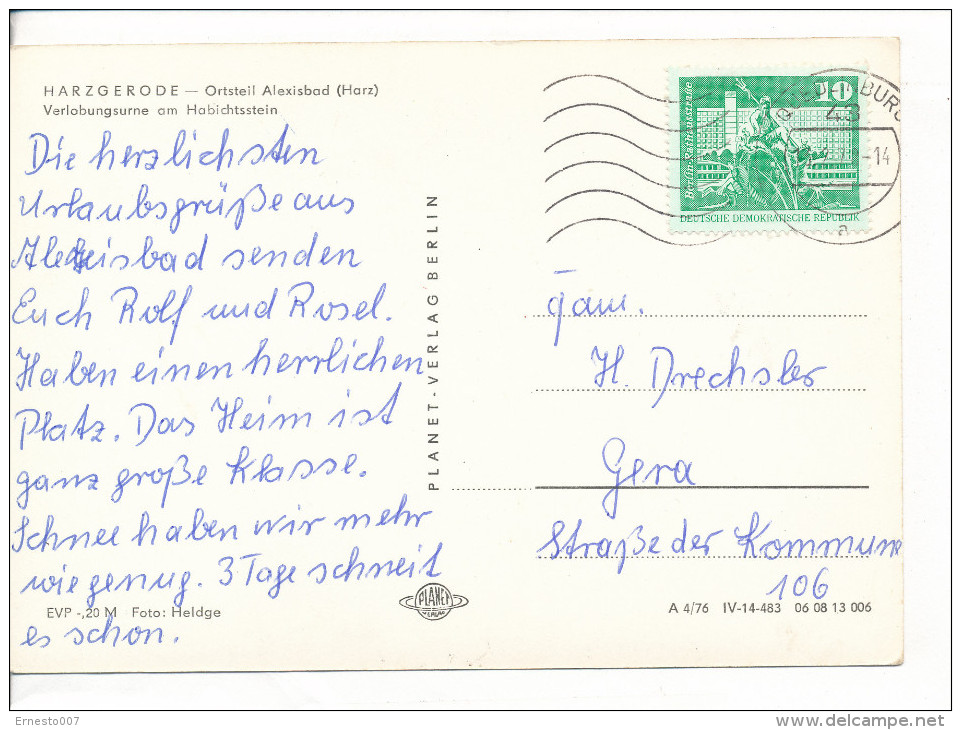 HARZGERODE — Ortsteil Alexisbad (Harz)
Verlobungsurne am Habichtsstein
Die herzlichsten
Urlaubsgrüße aus
Alexisbad senden
Euch Rolf und Rosel.
Haben einen herrlichen
Platz. Das Heim ist
ganz große Klasse.
Schnee haben wir mehr
wie genug. 3 Tage schneit
es schon.
EVP -,20 M Foto: Heldge
PLANET-VERLAG BERLIN
PLANET
VERLAG
10
DEUTSCHE DEMOKRATISCHE REPUBLIK
43
-14
a
Fam.
H. Drechsler
Gera
Straße der Kommune
106
A 4/76 IV-14-483 06 08 13 006
Ernesto007
delcampe.net